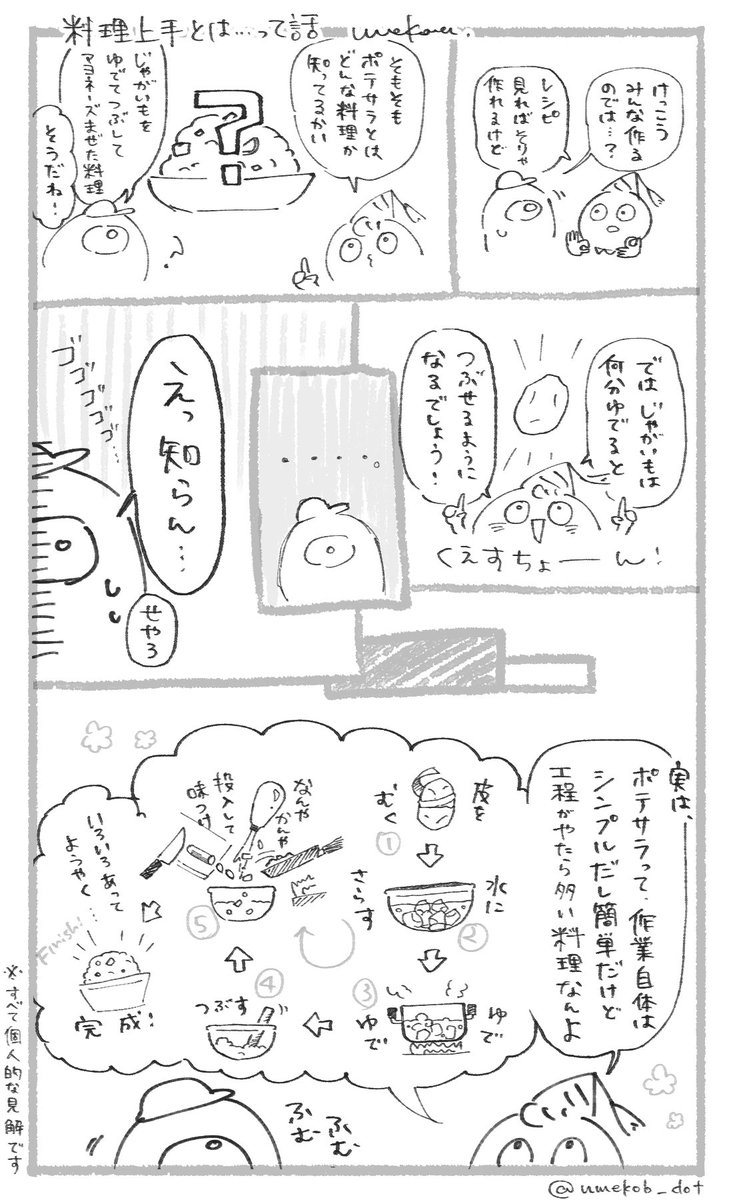 料理上手とは…って話
umekob.
けっこう
みんな作る
のでは…?
レシピ
見ればそりゃ
作れるけど
そもそも
ポテサラとは
どんな料理か
知ってるかい
?
じゃがいもを
ゆでてつぶして
マヨネーズまぜた料理
そうだねー
では じゃがいもは
何分ゆでると
つぶせるように
なるでしょう!
くえすちょーん!
・・・・。
ゴゴゴゴゴ…
えっ知らん…
せやろ
実は、
ポテサラって、作業自体は
シンプルだし簡単だけど
工程がやたら多い料理なんよ
皮を
むく
①
水に
さらす
②
③
ゆで
ゆで
④
つぶす
⑤
なんや
かんや
投入して
味つけ
いろいろあって
ようやく…
Finish!
完成!
ふむ
ふむ
※すべて個人的な見解です
@umekob_dot